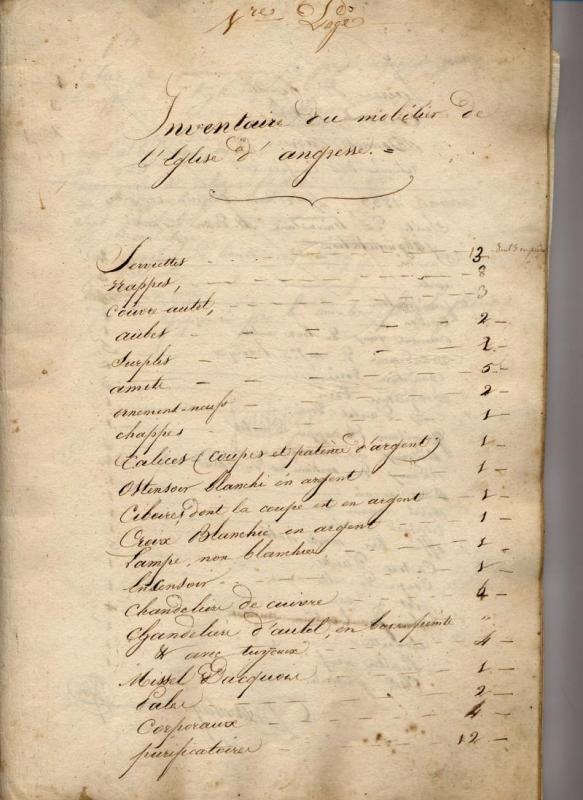 1re Page
Inventaire du mobilier de
l'Eglise d'angresse. =
Serviettes 13
nappes, 8
couvre-autel, 3
aubes 2
Surplis 2
amits 5
ornement-neufs 2
chappes 1
Calices (coupes et patène d'argent) 1
Ostensoir blanchi en argent 1
Ciboire, dont la coupe est en argent 1
Croix Blanchie en argent 1
Lampe, non blanchie 1
Encensoir 1
Chandeliers de cuivre 4
Chandeliers d'autel, en bois peints "
& avec tuyeaux 4
Missel Dacquois 1
Pales 2
Corporaux 4
purificatoires 12